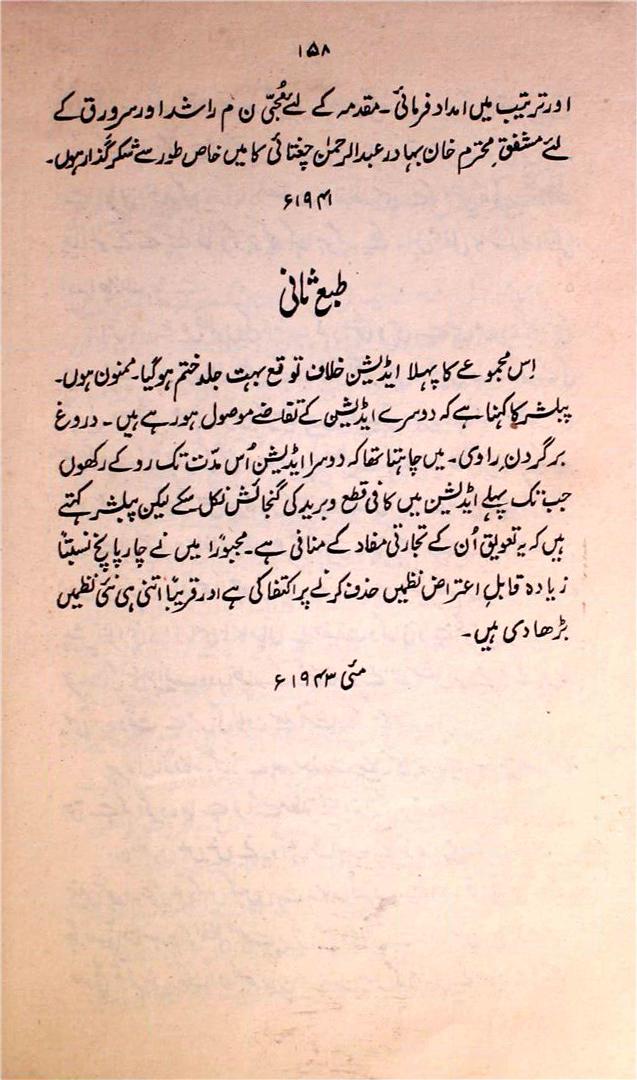 ۱۵۸
اور ترتیب میں امداد فرمائی۔ مقدمہ کے لئے مُجبّی ن م راشد اور سرورق کے
لئے مشفقِ محترم خان بہادر عبدالرحمٰن چغتائی کا میں خاص طور سے شکر گذار ہوں۔
۱۹۴۱ء
طبع ثانی
اِس مجموعے کا پہلا ایڈیشن خلاف توقع بہت جلد ختم ہوگیا۔ ممنون ہوں۔
پبلشر کا کہنا ہے کہ دوسرے ایڈیشن کے تقاضے موصول ہو رہے ہیں۔ دروغ
برگردنِ راوی۔ میں چاہتا تھا کہ دوسرا ایڈیشن اُس مدّت تک روکے رکھوں
جب تک پہلے ایڈیشن میں کافی قطع و برید کی گنجائش نکل سکے لیکن پبلشر کہتے
ہیں کہ یہ تعویق اُن کے تجارتی مفاد کے منافی ہے۔ مجبوراً میں نے چار پانچ نسبتاً
زیادہ قابلِ اعتراض نظمیں حذف کرنے پر اکتفا کی ہے اور قریباً اتنی ہی نئی نظمیں
بڑھا دی ہیں۔
مئی ۱۹۴۳ء